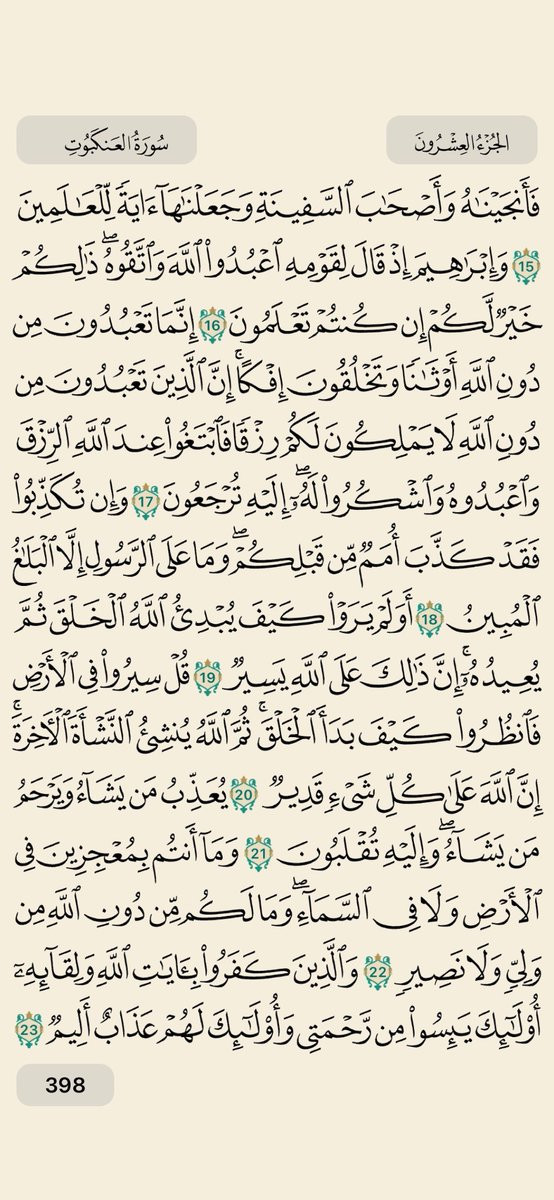 الجُزْءُ العِشْرُونَ
سُورَةُ العَنكَبُوتِ
فَأَنجَيْنَٰهُ وَأَصْحَٰبَ ٱلسَّفِينَةِ وَجَعَلْنَٰهَآ ءَايَةً لِّلْعَٰلَمِينَ
15 وَإِبْرَٰهِيمَ إِذْ قَالَ لِقَوْمِهِ ٱعْبُدُوا۟ ٱللَّهَ وَٱتَّقُوهُ ۖ ذَٰلِكُمْ
خَيْرٌ لَّكُمْ إِن كُنتُمْ تَعْلَمُونَ 16 إِنَّمَا تَعْبُدُونَ مِن
دُونِ ٱللَّهِ أَوْثَٰنًا وَتَخْلُقُونَ إِفْكًا ۚ إِنَّ ٱلَّذِينَ تَعْبُدُونَ مِن
دُونِ ٱللَّهِ لَا يَمْلِكُونَ لَكُمْ رِزْقًا فَٱبْتَغُوا۟ عِندَ ٱللَّهِ ٱلرِّزْقَ
وَٱعْبُدُوهُ وَٱشْكُرُوا۟ لَهُۥٓ ۖ إِلَيْهِ تُرْجَعُونَ 17 وَإِن تُكَذِّبُوا۟
فَقَدْ كَذَّبَ أُمَمٌ مِّن قَبْلِكُمْ ۖ وَمَا عَلَى ٱلرَّسُولِ إِلَّا ٱلْبَلَٰغُ
ٱلْمُبِينُ 18 أَوَلَمْ يَرَوْا۟ كَيْفَ يُبْدِئُ ٱللَّهُ ٱلْخَلْقَ ثُمَّ
يُعِيدُهُۥٓ ۚ إِنَّ ذَٰلِكَ عَلَى ٱللَّهِ يَسِيرٌ 19 قُلْ سِيرُوا۟ فِى ٱلْأَرْضِ
فَٱنظُرُوا۟ كَيْفَ بَدَأَ ٱلْخَلْقَ ۚ ثُمَّ ٱللَّهُ يُنشِئُ ٱلنَّشْأَةَ ٱلْءَاخِرَةَ ۚ
إِنَّ ٱللَّهَ عَلَىٰ كُلِّ شَىْءٍ قَدِيرٌ 20 يُعَذِّبُ مَن يَشَآءُ وَيَرْحَمُ
مَن يَشَآءُ ۖ وَإِلَيْهِ تُقْلَبُونَ 21 وَمَآ أَنتُم بِمُعْجِزِينَ فِى
ٱلْأَرْضِ وَلَا فِى ٱلسَّمَآءِ ۖ وَمَا لَكُم مِّن دُونِ ٱللَّهِ مِن
وَلِىٍّ وَلَا نَصِيرٍ 22 وَٱلَّذِينَ كَفَرُوا۟ بِـَٔايَٰتِ ٱللَّهِ وَلِقَآئِهِۦٓ
أُو۟لَٰٓئِكَ يَئِسُوا۟ مِن رَّحْمَتِى وَأُو۟لَٰٓئِكَ لَهُمْ عَذَابٌ أَلِيمٌ 23
398